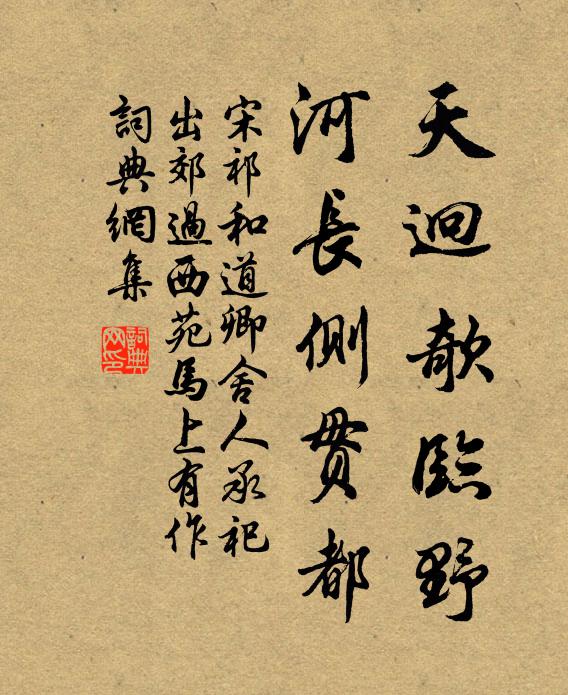 天迴欹臨野
河長側貫都
宋祁和道卿舍人承祀
出郊過西苑馬上有作
詞典網集
詞典
网印